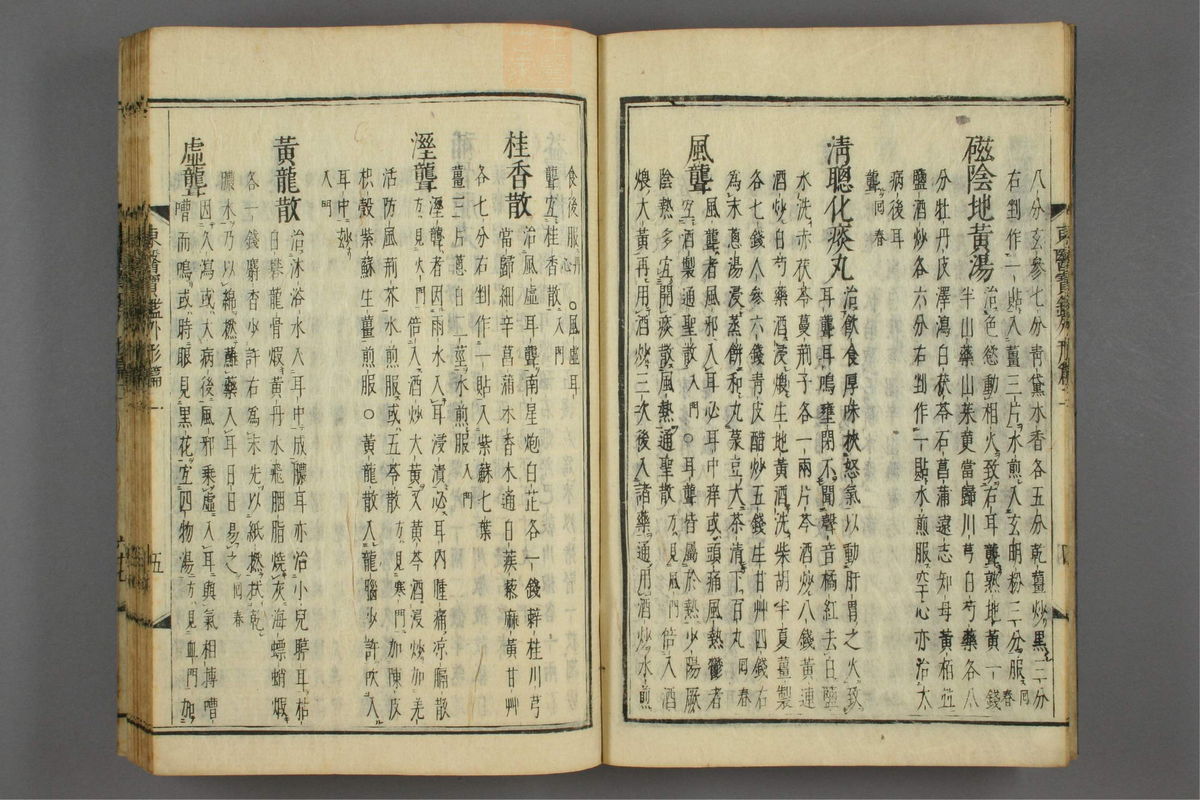 八分玄參七分靑黛木香各五分乾薑炒黑三分
右剉作一貼入薑三片水煎入玄明粉三分服回春
磁陰地黃湯 治色慾動相火致右耳聾熟地黃一錢
半山藥山茱萸當歸川芎白芍藥各八
分牡丹皮澤瀉白茯苓石菖蒲遠志知母黃栢並
鹽酒炒各六分右剉作一貼水煎服空心亦治大
病後耳
聾回春
淸聰化痰丸 治飮食厚味挾怒氣以動肝胃之火致
耳聾耳鳴壅閉不聞聲音橘紅去白鹽
水洗赤茯苓蔓荊子各一兩片芩酒炒八錢黃連
酒炒白芍藥酒浸煨生地黃酒洗柴胡半夏薑製
各七錢人參六錢靑皮醋炒五錢生甘艸四錢右
爲末蔥湯浸蒸餠和丸菉豆大茶淸下百丸回春
風聾 風聾者風邪入耳必耳中痒或頭痛風熱鬱者
宜酒製通聖散入門○耳聾皆屬於熱少陽厥
陰熱多宜開痰散風熱通聖散方見風門倍入酒
煨大黃再用酒炒三次後入諸藥通用酒炒水煎
食後服丹心○風虛耳
聾宜桂香散入門
桂香散 治風虛耳聾南星炮白芷各一錢辛桂川芎
當歸細辛菖蒲木香木通白蒺藜麻黃甘艸
各七分右剉作一貼入紫蘇七葉
薑三片蔥白二莖水煎服入門
溼聾 溼聾者因雨水入耳浸漬必耳內腫痛涼膈散
方見火門倍入酒炒大黃又黃芩酒浸炒加羌
活防風荊芥水煎服或五苓散方見寒門加陳皮
枳殼紫蘇生薑煎服○黃龍散入龍腦少許吹入
耳中妙
入門
黃龍散 治沐浴水入耳中成膿耳亦治小兒聤耳枯
白礬龍骨煅黃丹水飛胭脂燒灰海螵蛸煅
各一錢麝香少許右爲末先以紙撚拭乾
膿水乃以綿撚蘸藥入耳日日易之回春
虛聾 因久瀉或大病後風邪乘虛入耳與氣相搏嘈
嘈而鳴或時眼見黑花宜四物湯方見血門加
東醫寶鑑外形篇二
五